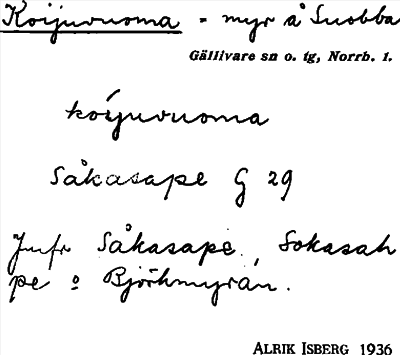 Koijuvuoma = myr å Suobba
Gällivare sn o. tg, Norrb. l.
kóijuvuoma
Såkasape G 29
Jmfr Såkasape, Sokasah
pe o Björkmyran.
ALRIK ISBERG 1936